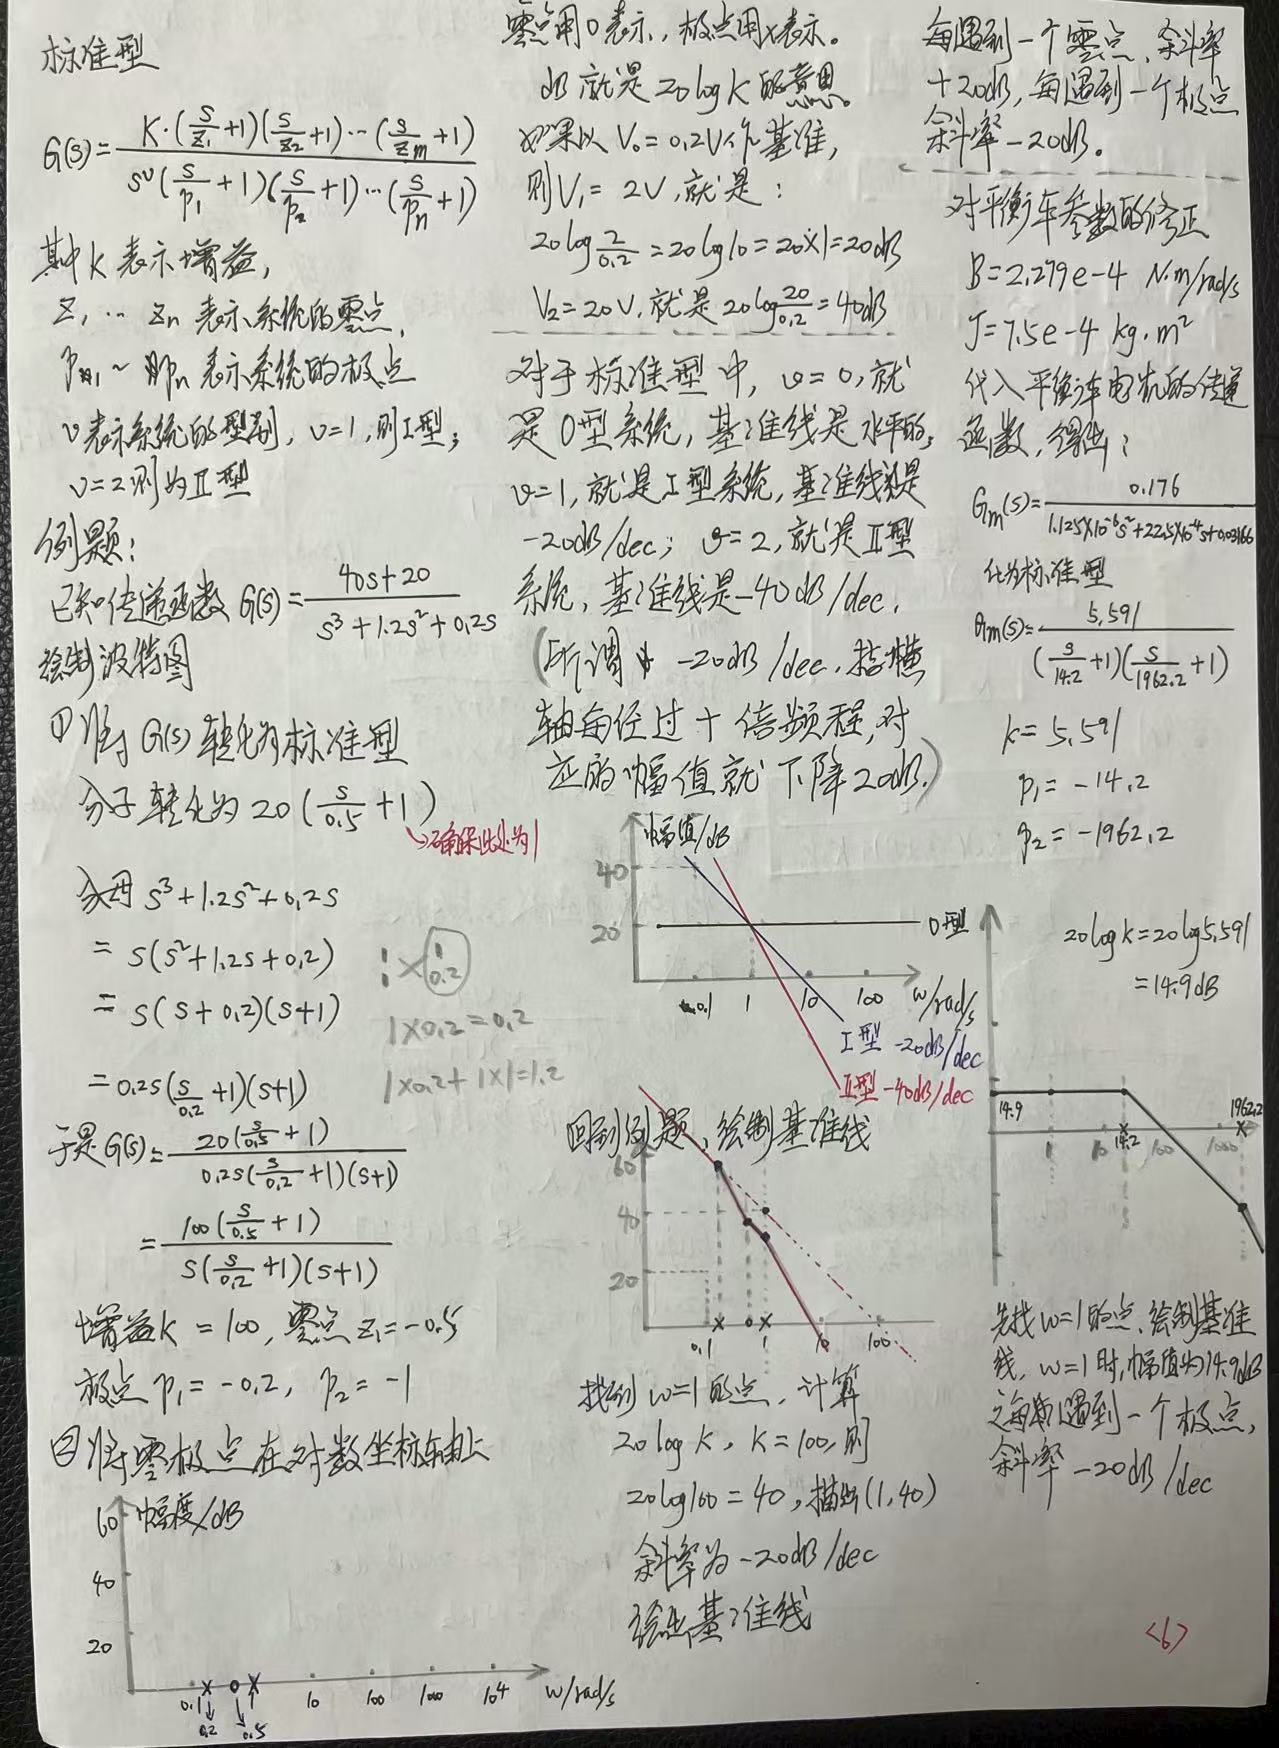 标准型
G(s)= K·(s/z₁+1)(s/z₂+1)···(s/zm+1) / s^υ(s/p₁+1)(s/p₂+1)···(s/pn+1)
其中K表示增益,
z₁ ··· zn 表示系统的零点,
p₁ ~ pn 表示系统的极点
υ表示系统的型别, υ=1,则I型;
υ=2则为II型
例题:
已知传递函数 G(s)= 40s+20 / s³+1.2s²+0.2s
绘制波特图
① 将G(s)转化为标准型
分子转化为 20(s/0.5+1)
确保此处为1
分母 s³+1.2s²+0.2s
= s(s²+1.2s+0.2)
= s(s+0.2)(s+1)
1 1
1 0.2
1×0.2=0.2
1×0.2+1×1=1.2
=0.2s(s/0.2+1)(s+1)
于是G(s)= 20(s/0.5+1) / 0.2s(s/0.2+1)(s+1)
= 100(s/0.5+1) / s(s/0.2+1)(s+1)
增益K=100, 零点z₁=-0.5
极点 p₁=-0.2, p₂=-1
② 将零极点在对数坐标轴上
60 幅度/dB
40
20
0.1 10 100 1000 10⁴ w/rad/s
0.2 0.5
零点用O表示, 极点用x表示。
dB就是20logK的意思。
如果以V₀=0.2V作基准,
则V₁=2V,就是:
20log 2/0.2 =20log10=20×1=20dB
V₂=20V,就是20log 20/0.2=40dB
对于标准型中, υ=0,就
是0型系统, 基准线是水平的;
υ=1,就是I型系统,基准线是
-20dB/dec; υ=2,就是II型
系统, 基准线是-40dB/dec,
(所谓 -20dB/dec,指横
轴每经过十倍频程,对
应的幅值就下降20dB.)
幅值/dB
40
20
0型
0.1 1 10 100 w/rad/s
I型 -20dB/dec
II型 -40dB/dec
回到例题,绘制基准线
60
40
20
0.1 1 10 100
找到w=1的点, 计算
20logK, K=100,则
20log100=40,描出(1,40)
斜率为-20dB/dec
绘出基准线
每遇到一个零点,斜率
+20dB,每遇到一个极点
斜率-20dB。
对平衡车参数的修正
B=2.279e-4 N·m/rad/s
J=7.5e-4 kg·m²
代入平衡车电机的传递
函数,得出:
Gm(s)= 0.176 / 1.125×10⁻⁶s²+22.5×10⁻⁴s+0.03166
化为标准型
Gm(s)= 5.591 / (s/14.2+1)(s/1962.2+1)
k=5.591
p₁=-14.2
p₂=-1962.2
20logK=20log5.591
=14.9dB
14.9
1 10 14.2 100 1000 1962.2
先找w=1的点,绘制基准
线, w=1时,幅值为14.9dB
之每遇到一个极点,
斜率-20dB/dec
<6>